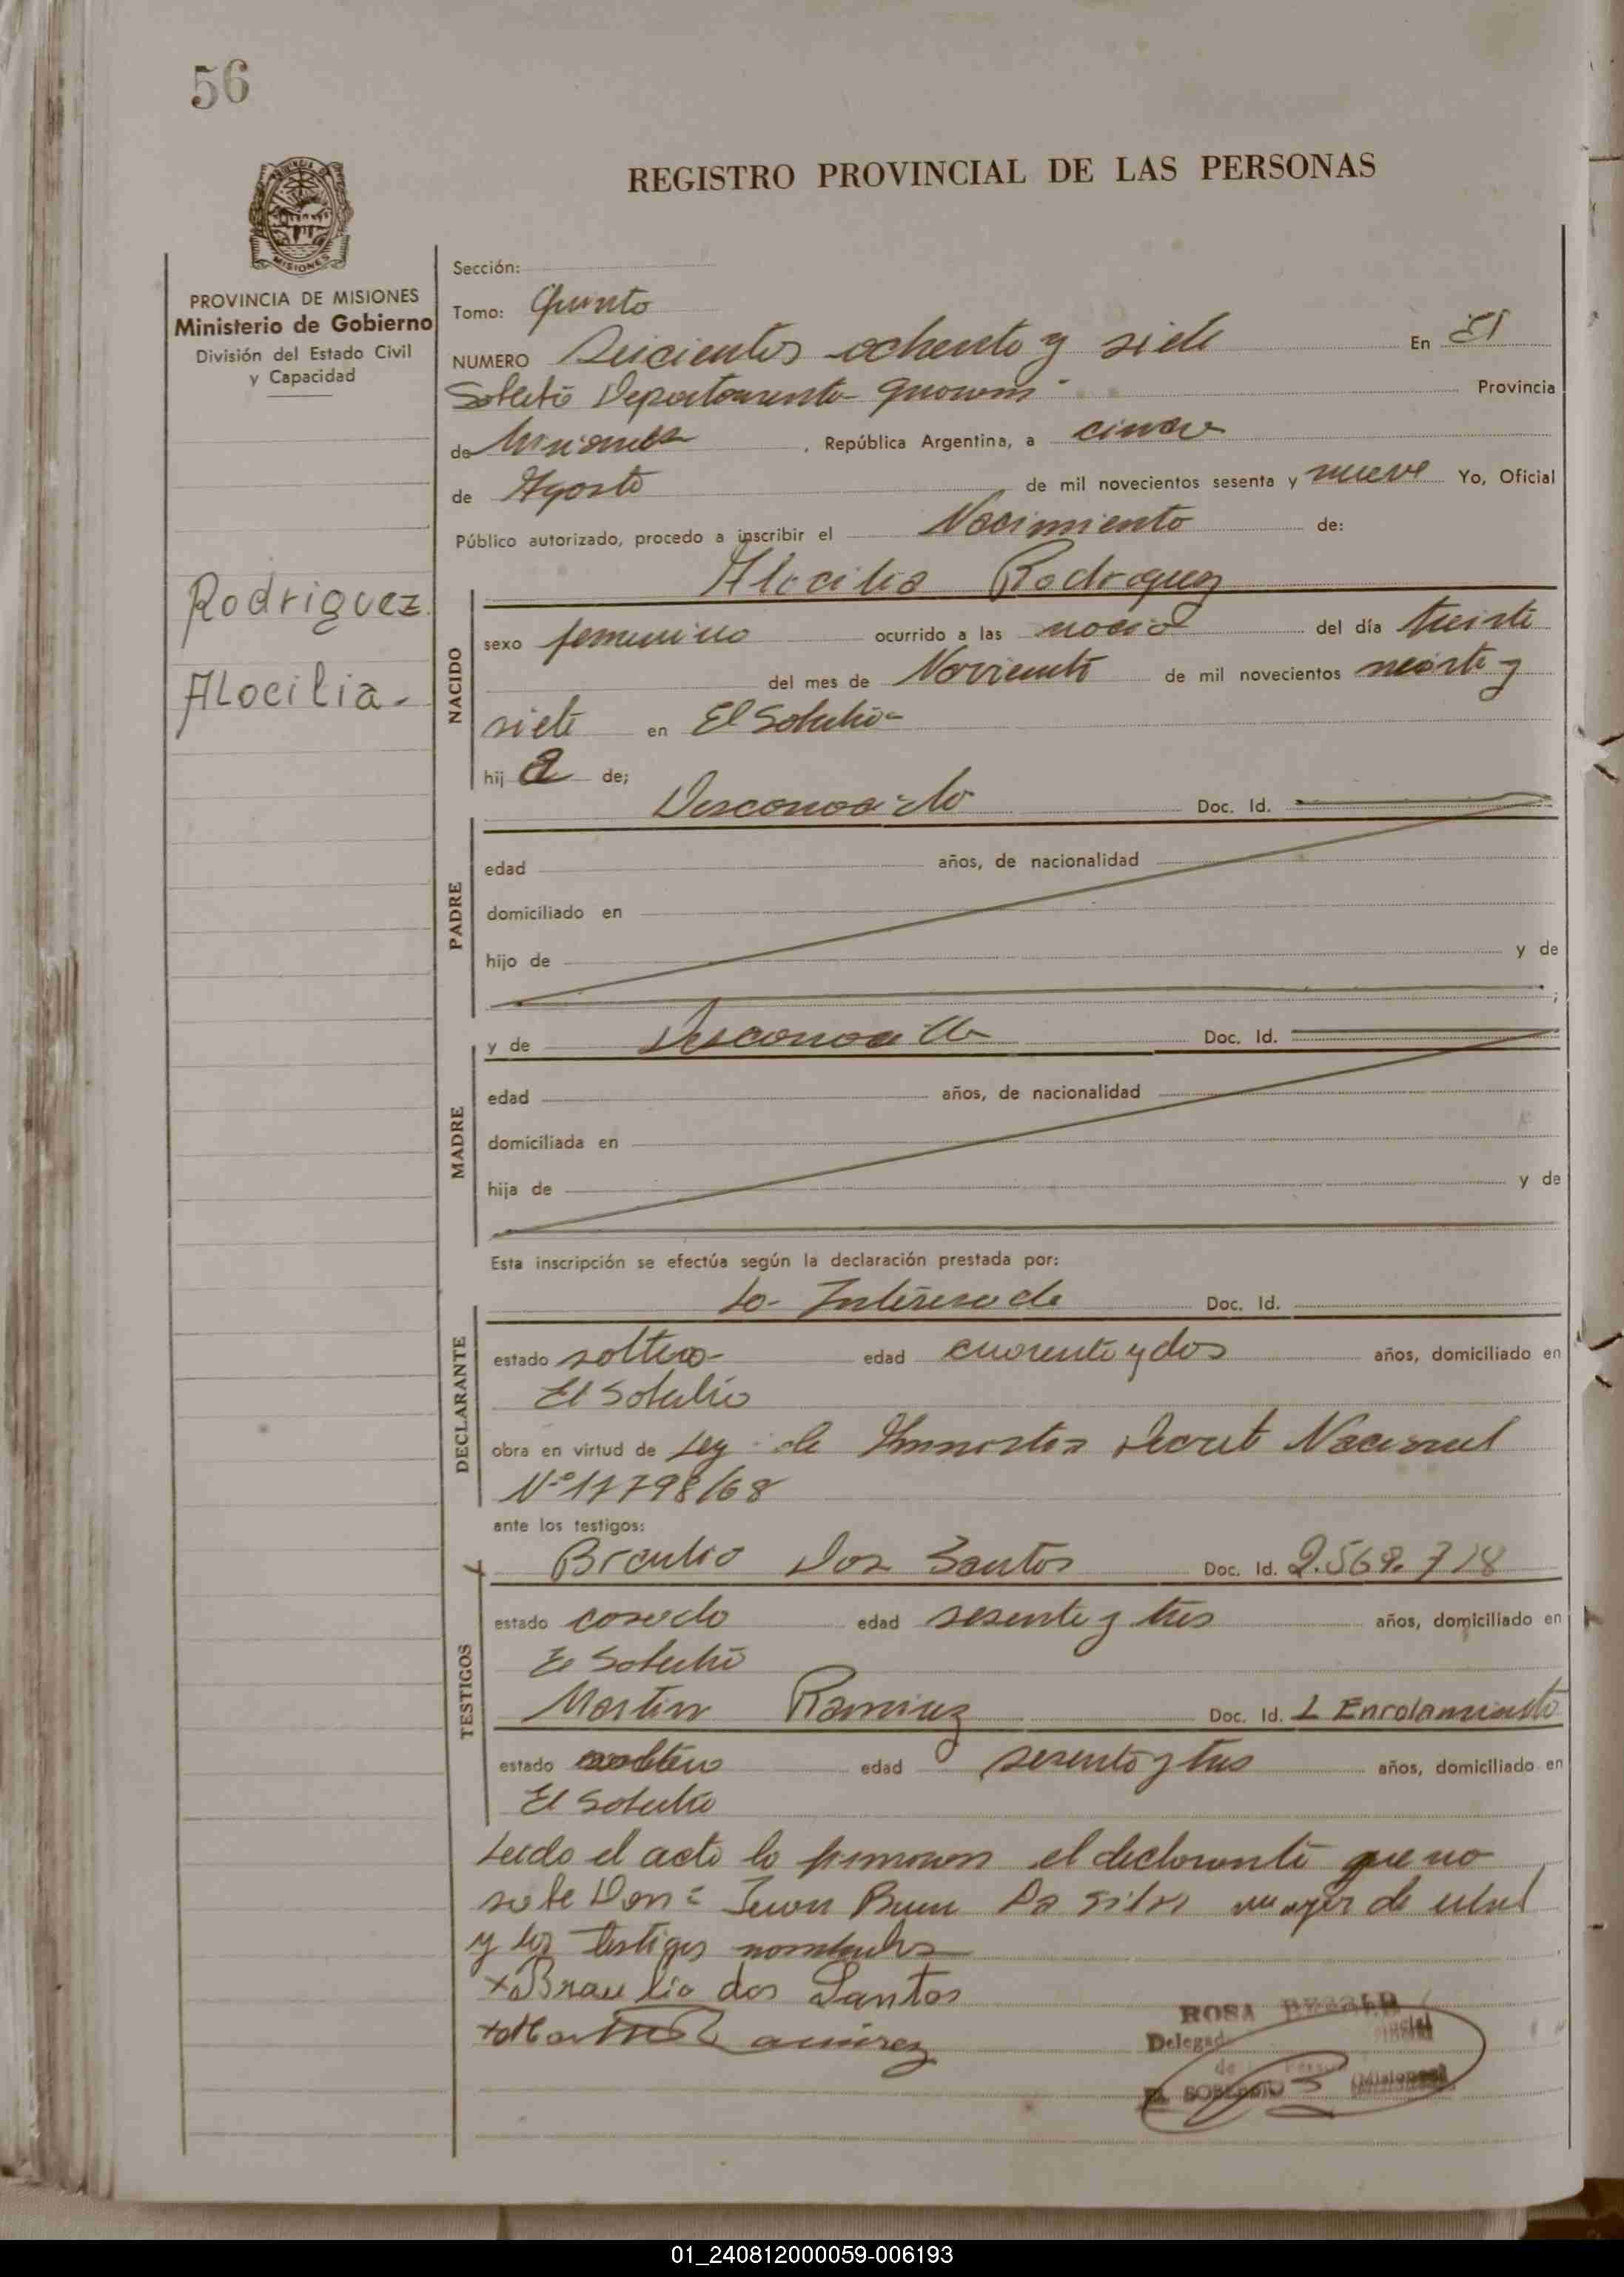 56
REGISTRO PROVINCIAL DE LAS PERSONAS
PROVINCIA DE MISIONES
Ministerio de Gobierno
División del Estado Civil
y Capacidad
Rodriguez
Alocilia.-
Sección:
Tomo: Quinto
NUMERO Seicientos ochenta y siete En El
Soberbio Departamento Guarani Provincia
de Misiones, República Argentina, a cinco
de Agosto de mil novecientos sesenta y nueve Yo, Oficial
Público autorizado, procedo a inscribir el Nacimiento de:
Alocilia Rodriguez
NACIDO
sexo femenino ocurrido a las del día treinta
del mes de Noviembre de mil novecientos veinte y
siete en El Soberbio
hija de;
PADRE
Desconocido Doc. Id.
edad años, de nacionalidad
domiciliado en
hijo de y de
;
MADRE
y de Desconocida Doc. Id.
edad años, de nacionalidad
domiciliada en
hija de y de
Esta inscripción se efectúa según la declaración prestada por:
DECLARANTE
La Interesada Doc. Id.
estado soltera edad cuarenta y dos años, domiciliado en
El Soberbio
obra en virtud de Ley de Amnistia Decreto Nacional
Nº 17798/68
ante los testigos:
TESTIGOS
Braulio Dos Santos Doc. Id. 2.568.718
estado casado edad sesenta y tres años, domiciliado en
El Soberbio
Martin Ramirez Doc. Id. L Enrolamiento
estado soltero edad sesenta y tres años, domiciliado en
El Soberbio
Leido el acta la firmaron el declarante que no
sabe Don: Juan Da Silva mayor de edad
y los testigos nombrados
x Braulio dos Santos
x Martin Ramirez
ROSA
Delegad
de
EL SOBERBIO (Misiones)
01_240812000059-006193